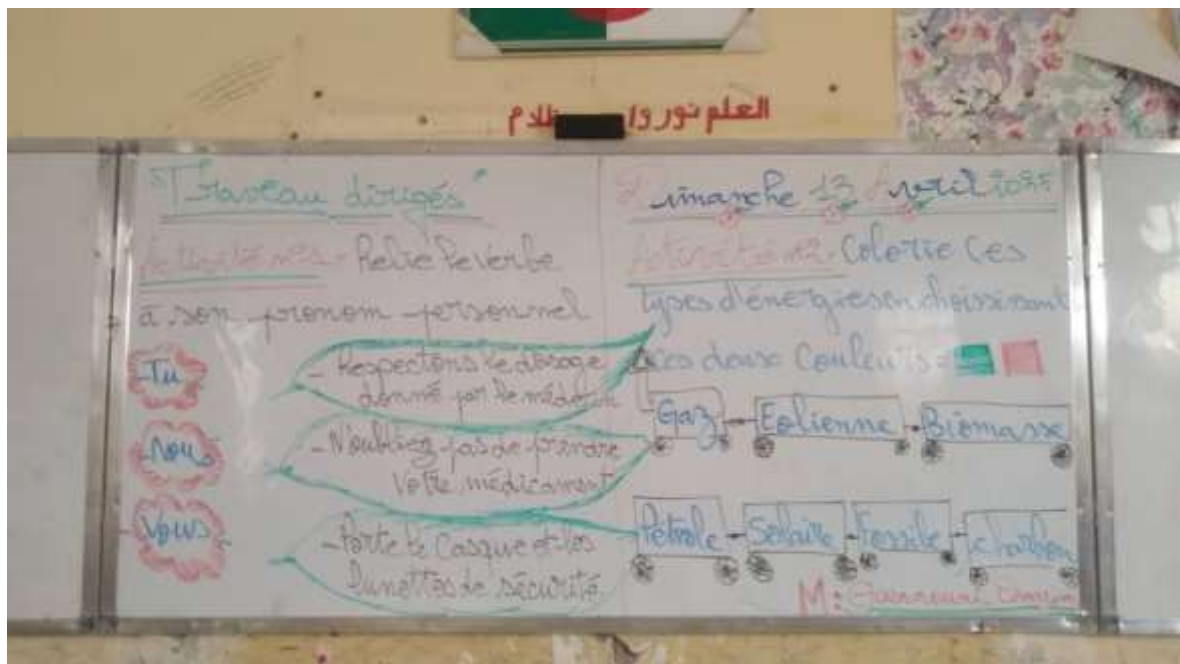 العلم نور وا ظلام
"Traveau dirigés"
Activité n°1: Relie le verbe
à son pronom personnel
Tu
nous
Vous
- Respectons le dosage
donné par le médecin
- N'oubliez pas de prendre
votre médicament
- Porte le casque et les
lunettes de sécurité
Dimanche 13 Avril 2025
Activité n°2: Colorie ces
types d'énergies en choisissant
ces deux couleurs:
Gaz Eolienne Biomasse
Pétrole Solaire Fossile charbon
M: